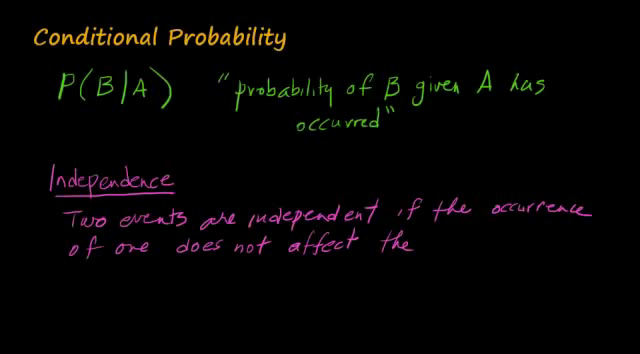 Conditional Probability
P(B/A) "probability of B given A has
occurred"
Independence
Two events are independent if the occurrence
of one does not affect the